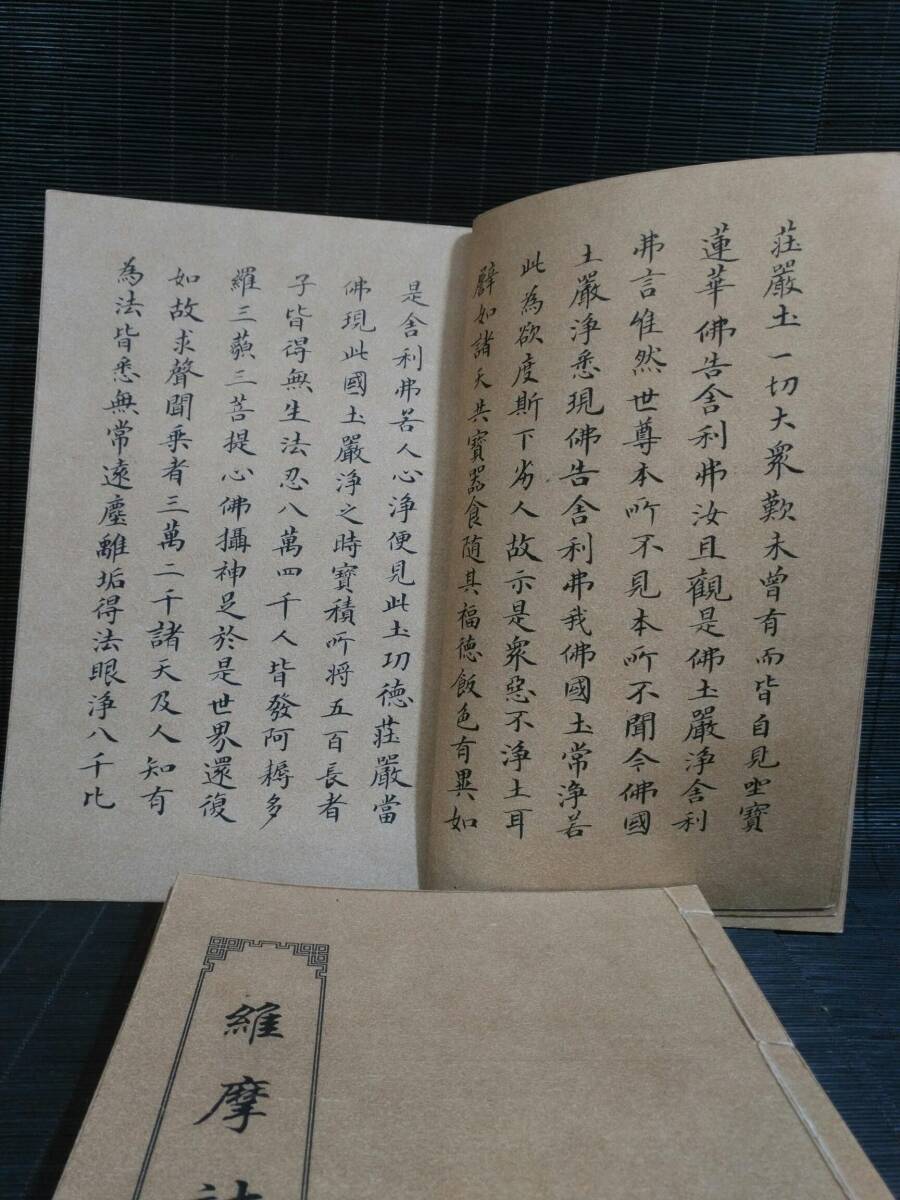 莊嚴土一切大衆歎未曾有而皆自見坐寶
蓮華佛告舍利弗汝且觀是佛土嚴淨舍利
弗言唯然世尊本所不見本所不聞今佛國
土嚴淨悉現佛告舍利弗我佛國土常淨若
此為欲度斯下劣人故示是衆惡不淨土耳
譬如諸天共寶器食隨其福德飯色有異如
是舍利弗若人心淨便見此土功德莊嚴當
佛現此國土嚴淨之時寶積所將五百長者
子皆得無生法忍八萬四千人皆發阿耨多
羅三藐三菩提心佛攝神足於是世界還復
如故求聲聞乘者三萬二千諸天及人知有
為法皆悉無常遠塵離垢得法眼淨八千比
維摩詰